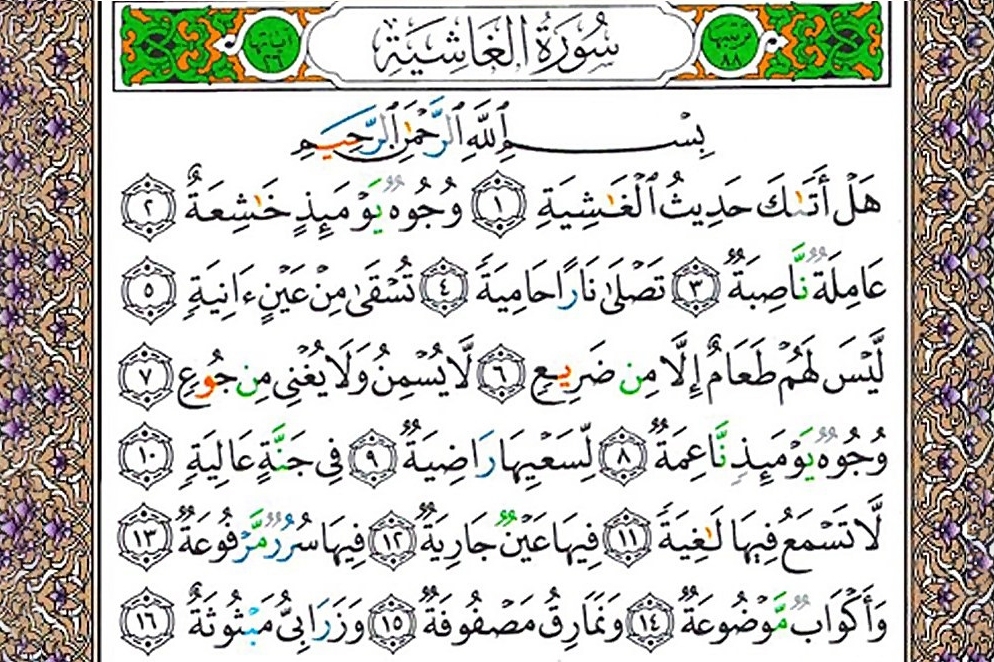 ترتيبها ٨٨ سُورَةُ الغَاشِيَةِ آياتها ٢٦
بِسْمِ ٱللَّهِ ٱلرَّحْمَٰنِ ٱلرَّحِيمِ
هَلْ أَتَىٰكَ حَدِيثُ ٱلْغَٰشِيَةِ ١ وُجُوهٌ يَوْمَئِذٍ خَٰشِعَةٌ ٢
عَامِلَةٌ نَّاصِبَةٌ ٣ تَصْلَىٰ نَارًا حَامِيَةً ٤ تُسْقَىٰ مِنْ عَيْنٍ ءَانِيَةٍ ٥
لَّيْسَ لَهُمْ طَعَامٌ إِلَّا مِن ضَرِيعٍ ٦ لَّا يُسْمِنُ وَلَا يُغْنِى مِن جُوعٍ ٧
وُجُوهٌ يَوْمَئِذٍ نَّاعِمَةٌ ٨ لِّسَعْيِهَا رَاضِيَةٌ ٩ فِى جَنَّةٍ عَالِيَةٍ ١٠
لَّا تَسْمَعُ فِيهَا لَٰغِيَةً ١١ فِيهَا عَيْنٌ جَارِيَةٌ ١٢ فِيهَا سُرُرٌ مَّرْفُوعَةٌ ١٣
وَأَكْوَابٌ مَّوْضُوعَةٌ ١٤ وَنَمَارِقُ مَصْفُوفَةٌ ١٥ وَزَرَابِىُّ مَبْثُوثَةٌ ١٦